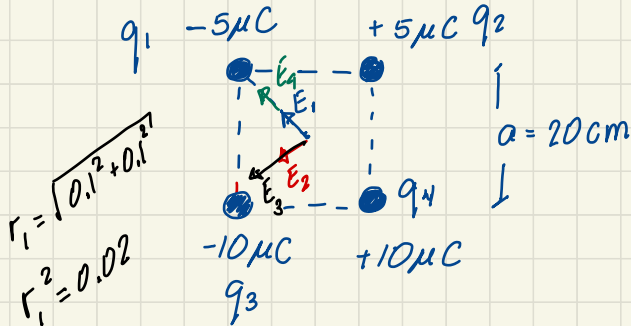 q₁ −5μC +5μC q₂
E₄
E₁
a = 20cm
E₂
E₃
q₄
r₁ = √0.1² + 0.1²
r₁² = 0.02
−10μC +10μC
q₃